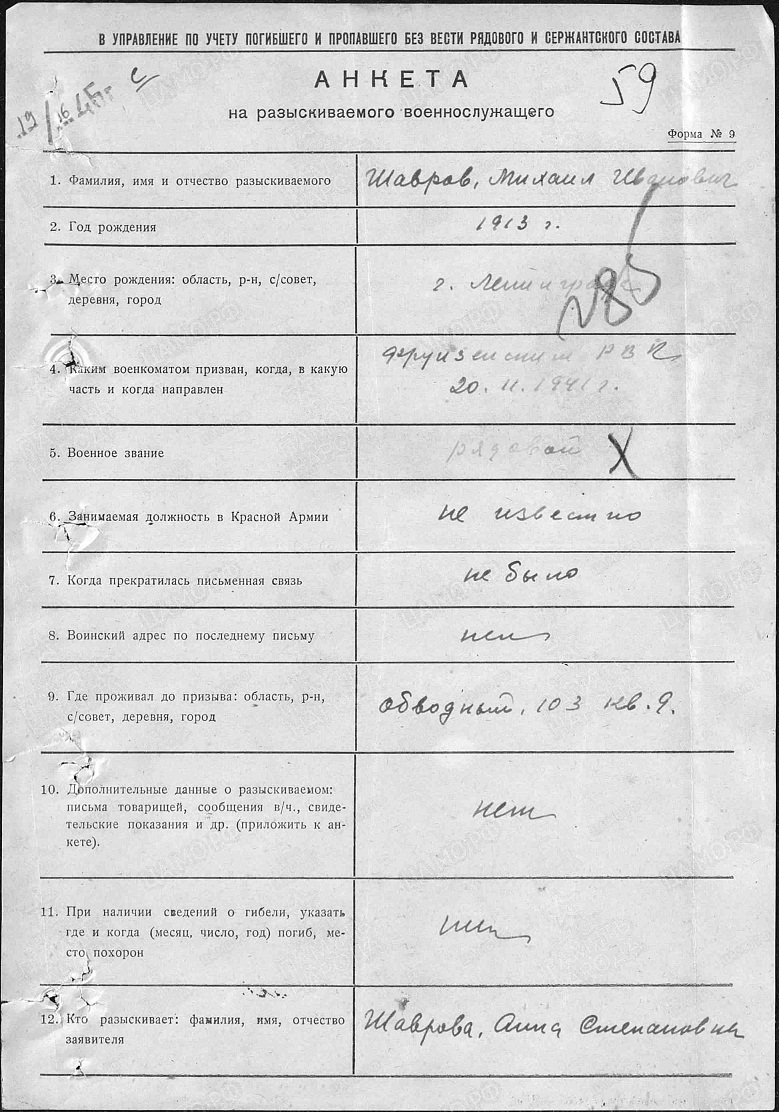 В УПРАВЛЕНИЕ ПО УЧЕТУ ПОГИБШЕГО И ПРОПАВШЕГО БЕЗ ВЕСТИ РЯДОВОГО И СЕРЖАНТСКОГО СОСТАВА
АНКЕТА
59
на разыскиваемого военнослужащего
Форма № 9
1. Фамилия, имя и отчество разыскиваемого
Шавров, Михаил Иванович
2. Год рождения
1913 г.
3. Место рождения: область, р-н, с/совет,
деревня, город
г. Ленинград
285
4. Каким военкоматом призван, когда, в какую
часть и когда направлен
Фрунзенским РВК
20. 11. 1941 г.
5. Военное звание
рядовой X
6. Занимаемая должность в Красной Армии
не известно
7. Когда прекратилась письменная связь
не было
8. Воинский адрес по последнему письму
нет
9. Где проживал до призыва: область, р-н,
с/совет, деревня, город
Обводный, 103 кв. 9.
10. Дополнительные данные о разыскиваемом:
письма товарищей, сообщения в/ч., свиде-
тельские показания и др. (приложить к ан-
кете).
нет
11. При наличии сведений о гибели, указать
где и когда (месяц, число, год) погиб, ме-
сто похорон
нет
12. Кто разыскивает: фамилия, имя, отчество
заявителя
Шаврова, Анна Степановна